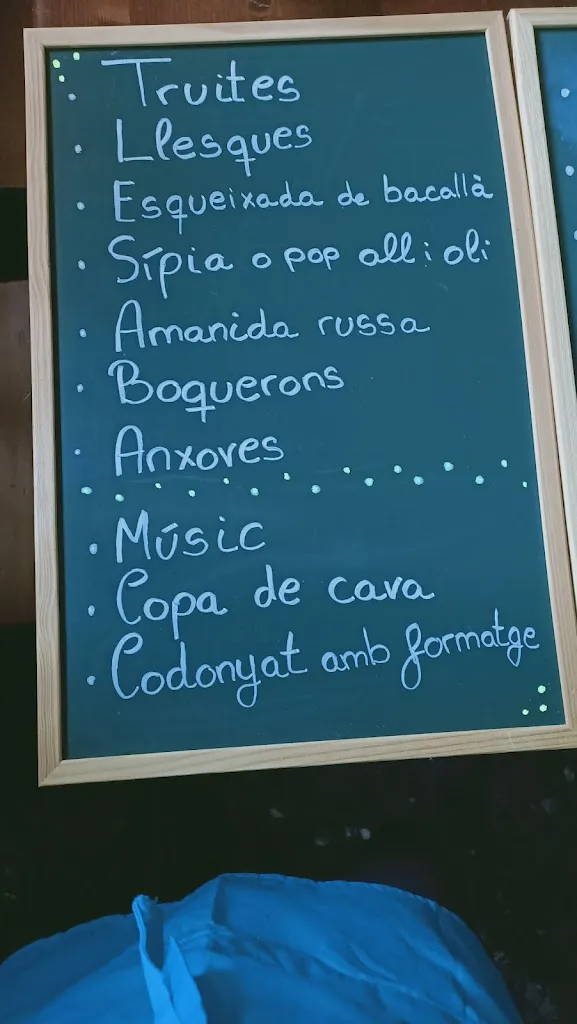 Truites
Llesques
Esqueixada de bacallà
Sípia o pop all i oli
Amanida russa
Boquerons
Anxoves
Músic
Copa de cava
Codonyat amb formatge